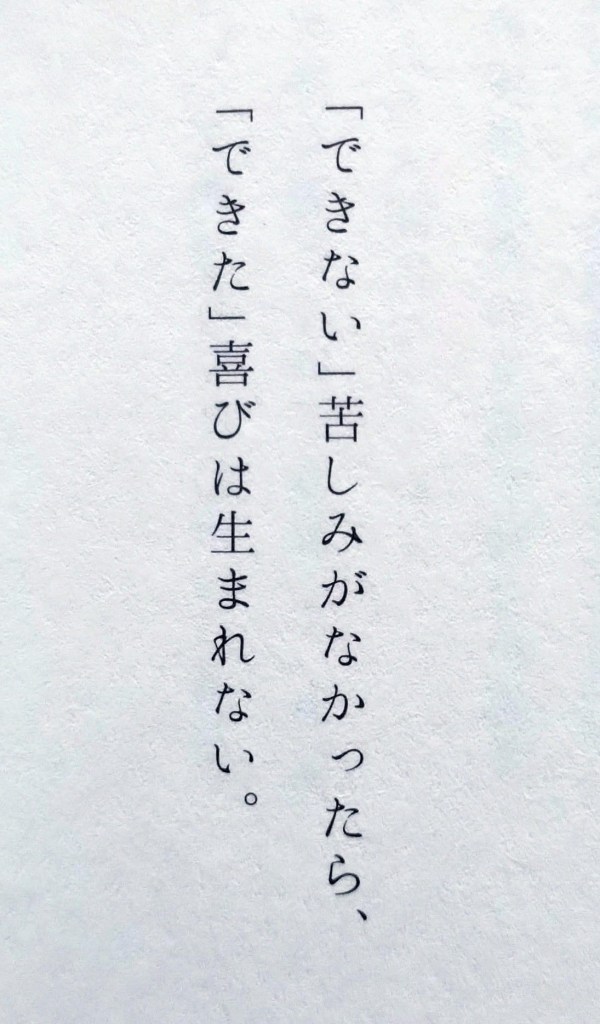 「できない」苦しみがなかったら、
「できた」喜びは生まれない。